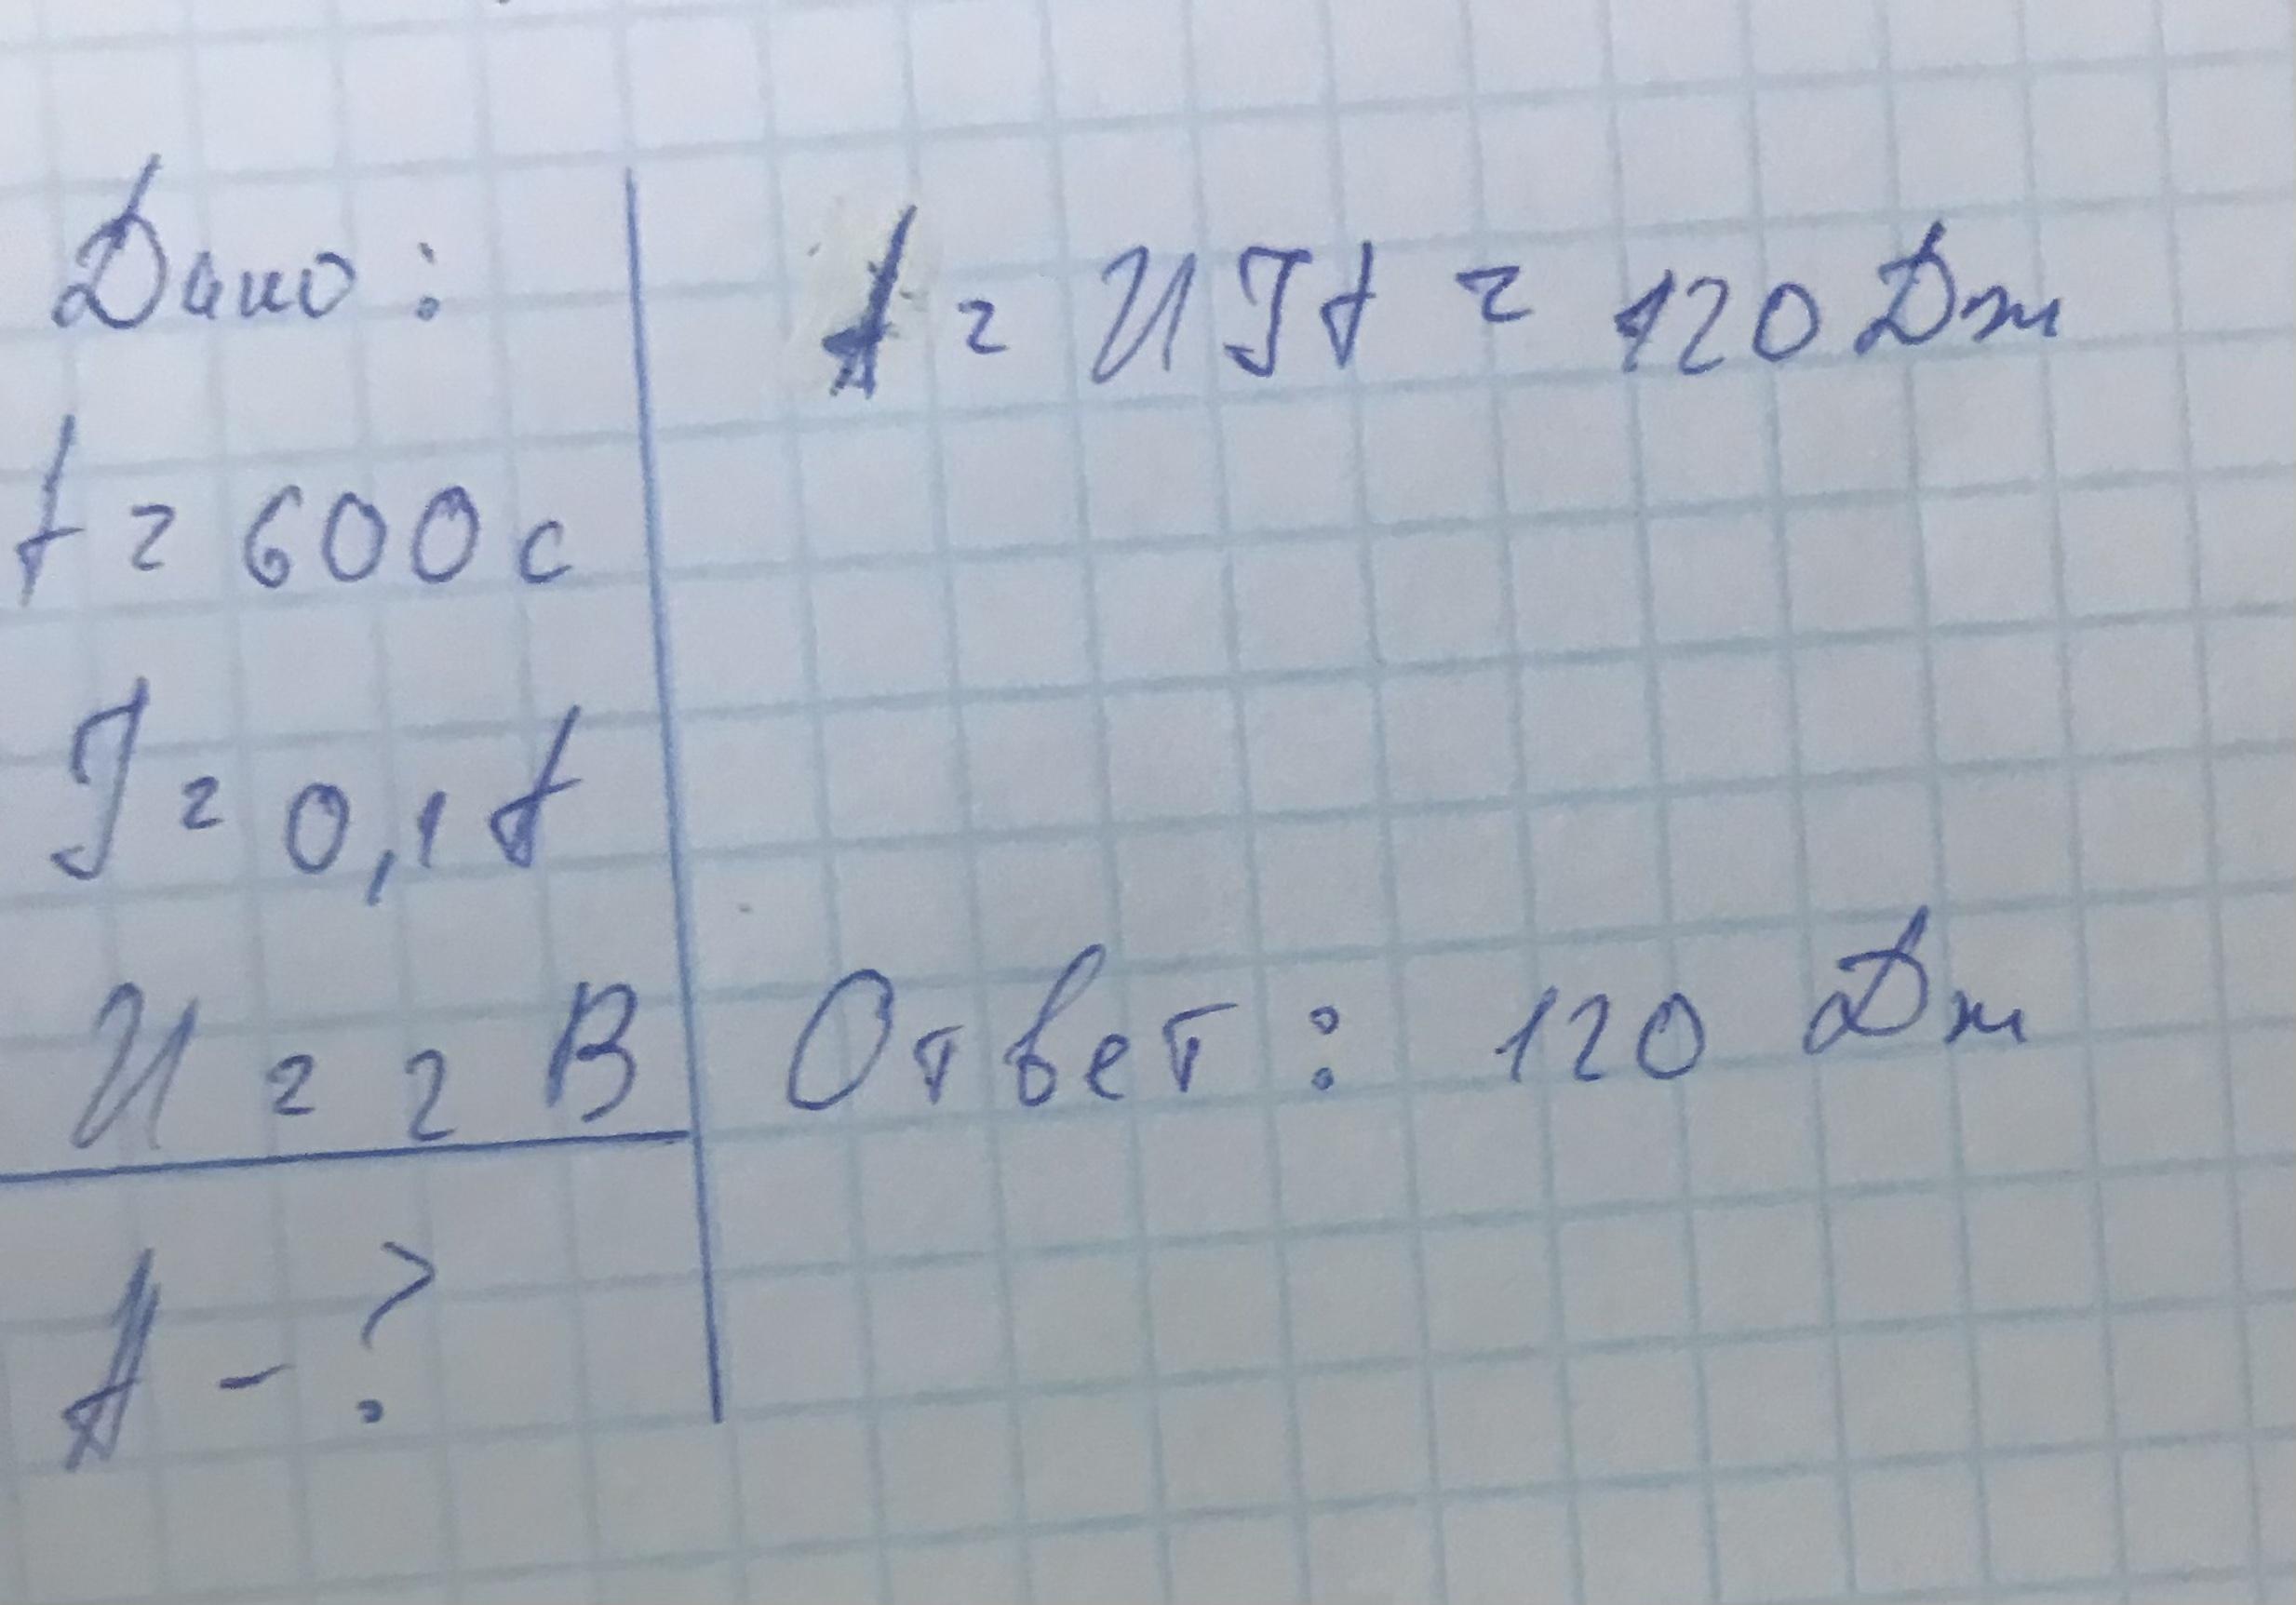 Дано:
t = 600 с
I = 0,1 А
U = 2 В
A - ?
A = UIt = 120 Дж
Ответ: 120 Дж